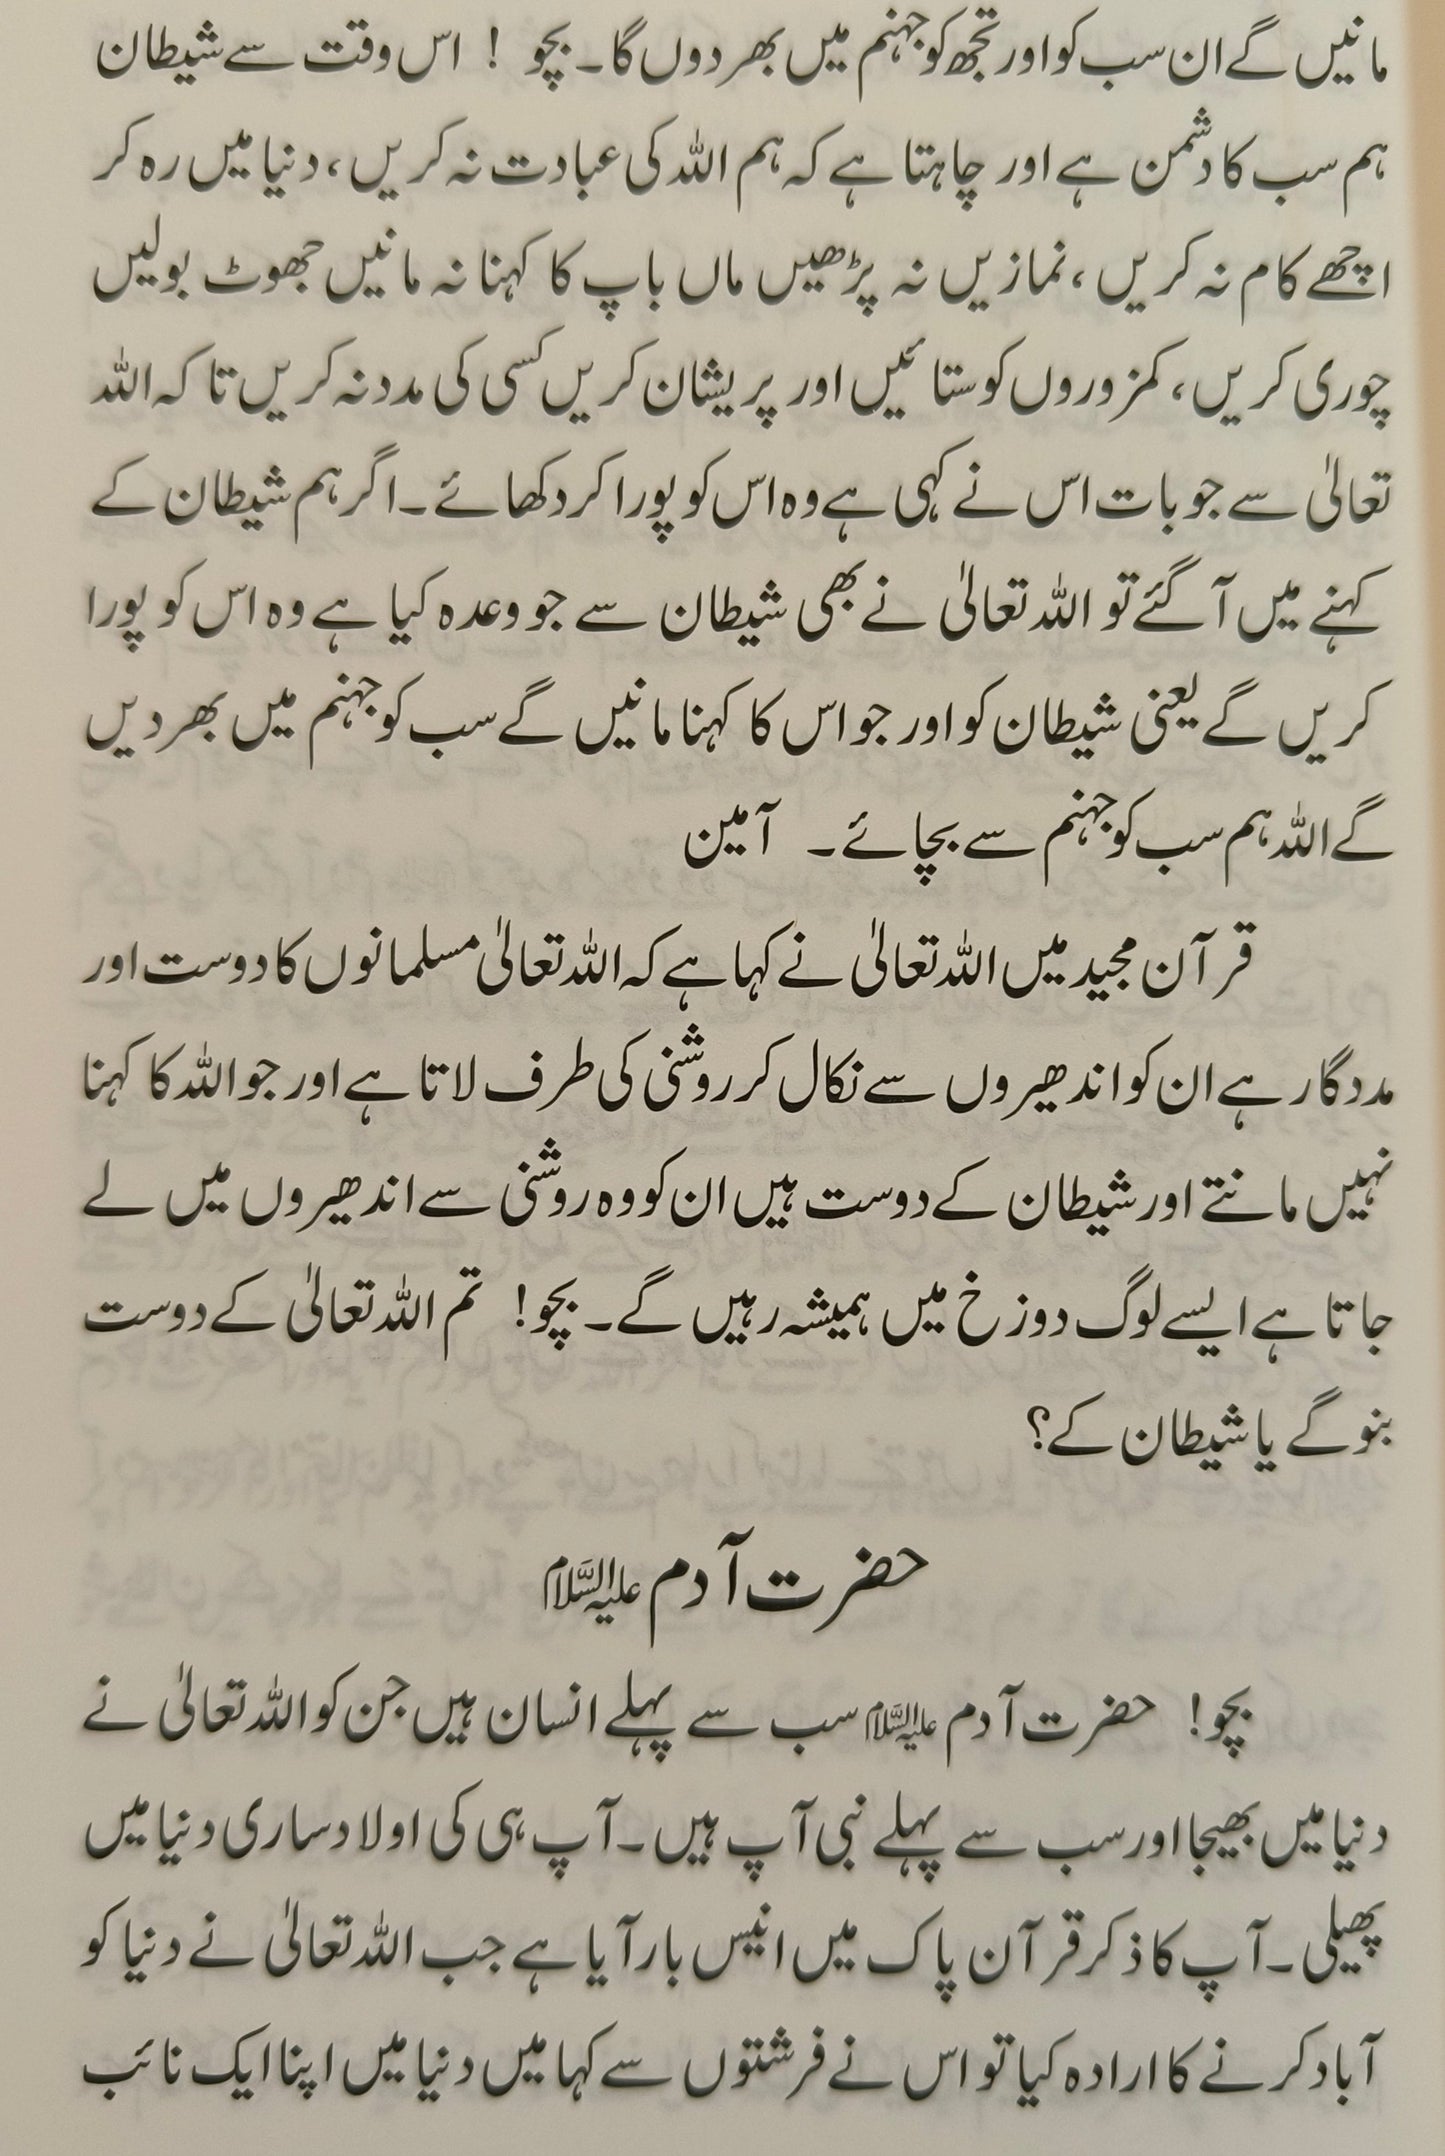 مانیں گے ان سب کو اور تجھ کو جہنم میں بھر دوں گا۔ بچو ! اس وقت سے شیطان
ہم سب کا دشمن ہے اور چاہتا ہے کہ ہم اللہ کی عبادت نہ کریں، دنیا میں رہ کر
اچھے کام نہ کریں، نمازیں نہ پڑھیں ماں باپ کا کہنا نہ مانیں جھوٹ بولیں
چوری کریں، کمزوروں کو ستائیں اور پریشان کریں کسی کی مدد نہ کریں تاکہ اللہ
تعالیٰ سے جو بات اس نے کہی ہے وہ اس کو پورا کر دکھائے۔ اگر ہم شیطان کے
کہنے میں آ گئے تو اللہ تعالیٰ نے بھی شیطان سے جو وعدہ کیا ہے وہ اس کو پورا
کریں گے یعنی شیطان کو اور جو اس کا کہنا مانیں گے سب کو جہنم میں بھر دیں
گے اللہ ہم سب کو جہنم سے بچائے۔ آمین
قرآن مجید میں اللہ تعالیٰ نے کہا ہے کہ اللہ تعالیٰ مسلمانوں کا دوست اور
مددگار ہے ان کو اندھیروں سے نکال کر روشنی کی طرف لاتا ہے اور جو اللہ کا کہنا
نہیں مانتے اور شیطان کے دوست ہیں ان کو وہ روشنی سے اندھیروں میں لے
جاتا ہے ایسے لوگ دوزخ میں ہمیشہ رہیں گے۔ بچو! تم اللہ تعالیٰ کے دوست
بنو گے یا شیطان کے؟
حضرت آدم علیہ السَّلام
بچو! حضرت آدم علیہ السَّلام سب سے پہلے انسان ہیں جن کو اللہ تعالیٰ نے
دنیا میں بھیجا اور سب سے پہلے نبی آپ ہیں۔ آپ ہی کی اولاد ساری دنیا میں
پھیلی۔ آپ کا ذکر قرآن پاک میں انیس بار آیا ہے جب اللہ تعالیٰ نے دنیا کو
آباد کرنے کا ارادہ کیا تو اس نے فرشتوں سے کہا میں دنیا میں اپنا ایک نائب